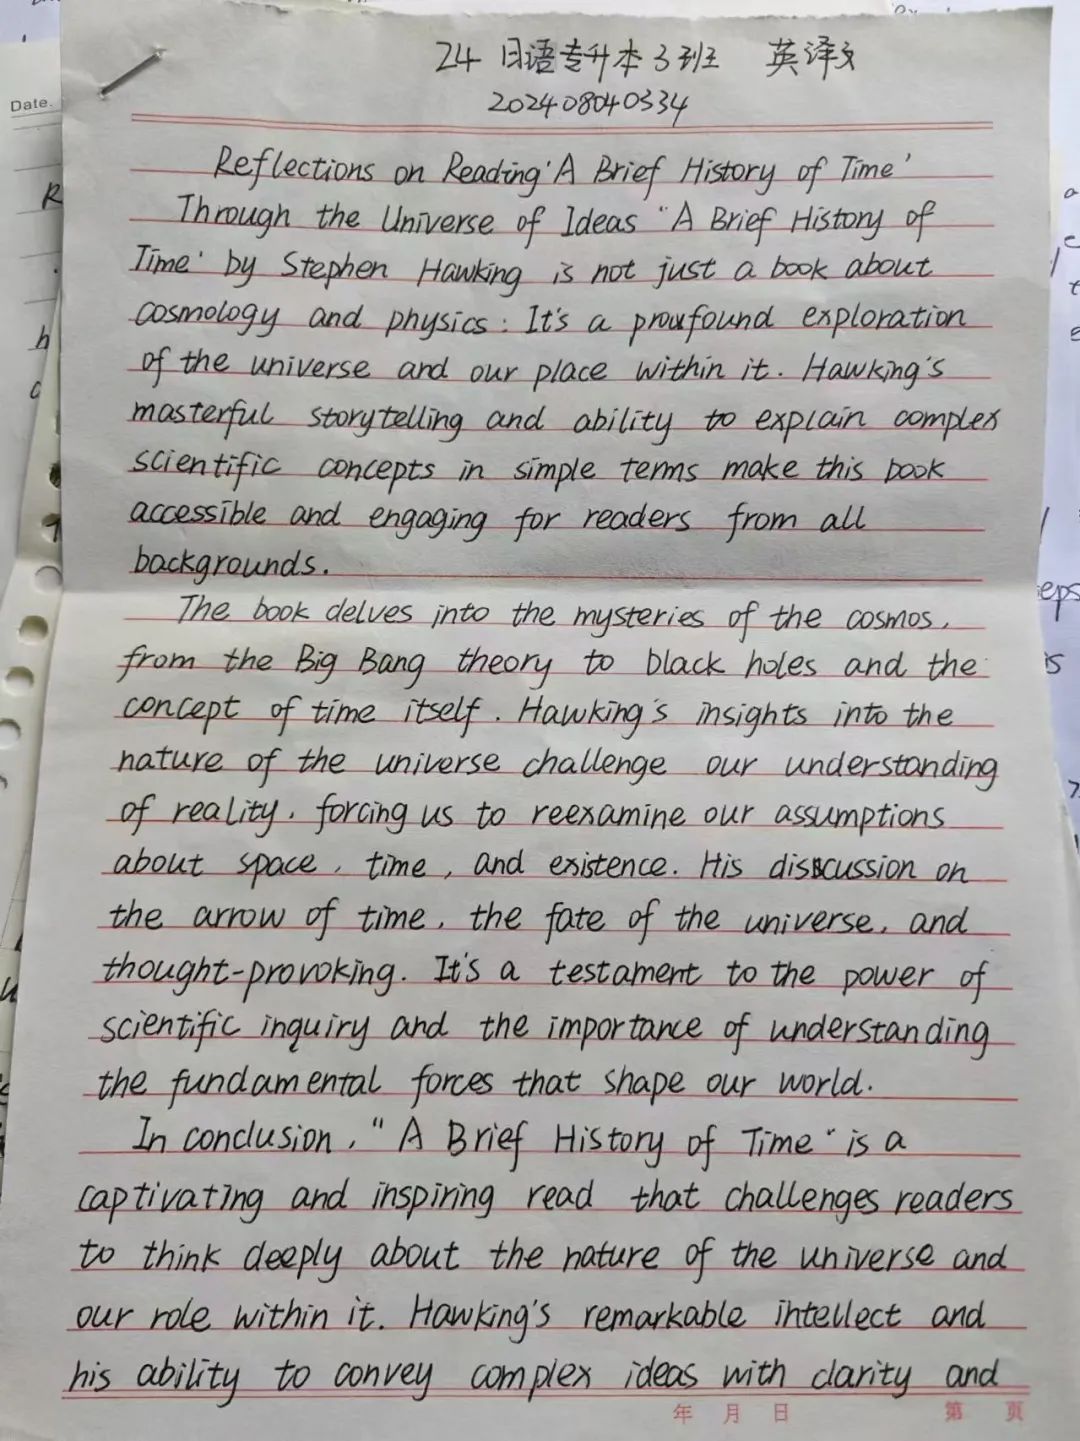 24 日语专升本3班 英译文
202408040334
Reflections on Reading 'A Brief History of Time'
Through the Universe of Ideas "A Brief History of
Time' by Stephen Hawking is not just a book about
cosmology and physics: It's a proufound exploration
of the universe and our place within it. Hawking's
masterful storytelling and ability to explain complex
scientific concepts in simple terms make this book
accessible and engaging for readers from all
backgrounds.
The book delves into the mysteries of the cosmos,
from the Big Bang theory to black holes and the
concept of time itself. Hawking's insights into the
nature of the universe challenge our understanding
of reality, forcing us to reexamine our assumptions
about space, time, and existence. His discussion on
the arrow of time, the fate of the universe, and
thought-provoking. It's a testament to the power of
scientific inquiry and the importance of understanding
the fundamental forces that shape our world.
In conclusion, "A Brief History of Time" is a
captivating and inspiring read that challenges readers
to think deeply about the nature of the universe and
our role within it. Hawking's remarkable intellect and
his ability to convey complex ideas with clarity and
年 月 日 第 页
Date.